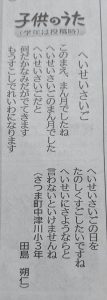 子供のうた
(学年は投稿時)
へいせいさいご
このまえ、まん月でしたね
へいせいさいごのまん月でした
へいせいさいごだと
何だかなみだがでてきます
もうすこしでれいわになります
へいせいさいごの日を
たのしくすごしたいですね
へいせいにさようならと
言わないといけませんね
(さつま町中津川小3年
田島 朔仁)